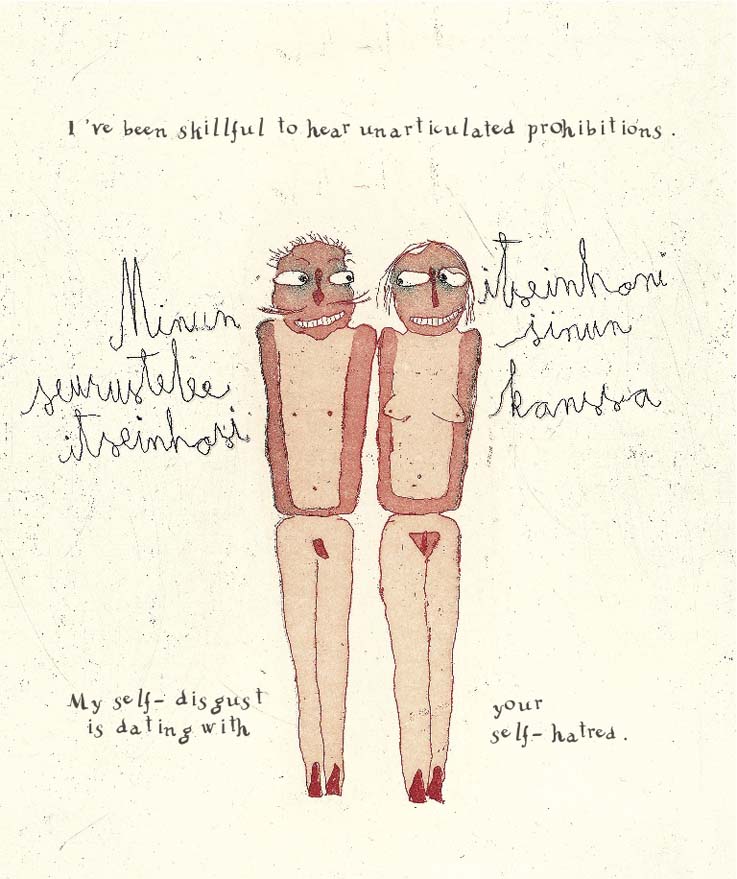 I've been skillful to hear unarticulated prohibitions.
Minun
seurustelee
itseinhosi
itseinhoni
sinun
kanssa
My self-disgust
is dating with
your
self-hatred.